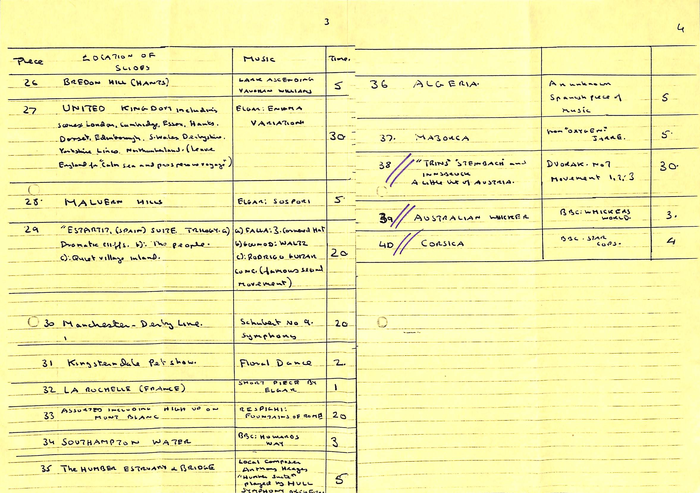 3
Piece LOCATION OF SLIDES MUSIC Time.
26 BREDON HILL (HANTS) LARK ASCENDING 5
VAUGHAN WILLIAMS
27 UNITED KINGDOM including ELGAR: ENIGMA 30
scenes London, Cambridge, Essex, Hants. VARIATIONS
Dorset, Edinborough, S. Wales Derbyshire.
Yorkshire Lincs. Northumberland. (Leave
England for "Calm sea and prosperous voyage")
28. MALVERN HILLS ELGAR: SOSPORI 5
29 "ESTARTIT, (SPAIN) SUITE TRILOGY. a) a) FALLA: 3. Cornered Hat 20
Dramatic cliffs. b): The people. b) GOUNOD: WALTZ
c): Quiet village inland. c): RODRIGO GUITAR
CONC: (famous second
movement)
30 Manchester - Derby Line. Schubert No 9. 20
Symphony
31 Kingsterndale Pet show. Floral Dance 2.
32 LA ROCHELLE (FRANCE) SHORT PIECE BY 1
ELGAR
33 ASSORTED INCLUDING HIGH UP ON RESPIGHI: 20
MONT BLANC FOUNTAINS OF ROME
34 SOUTHAMPTON WATER BBC: HOWARDS 3
WAY
35 THE HUMBER ESTRUARY & BRIDGE Local Composer 5
Anthony Hedges
"Humber Suite"
played by HULL
SYMPHONY
4
36 ALGERIA. An unknown 5
Spanish piece of
music
37. MAJORCA from "OXYGEN" 5.
JARRE.
38 "TRINS" STEINBACH and DVORAK. No 7 30.
INNSBRUCK Movement 1, 2, 3
A little bit of AUSTRIA.
39 AUSTRALIAN WHICKER BBC: WHICKERS 3.
WORLD.
40 CORSICA BBC. STAR 4
COPS.